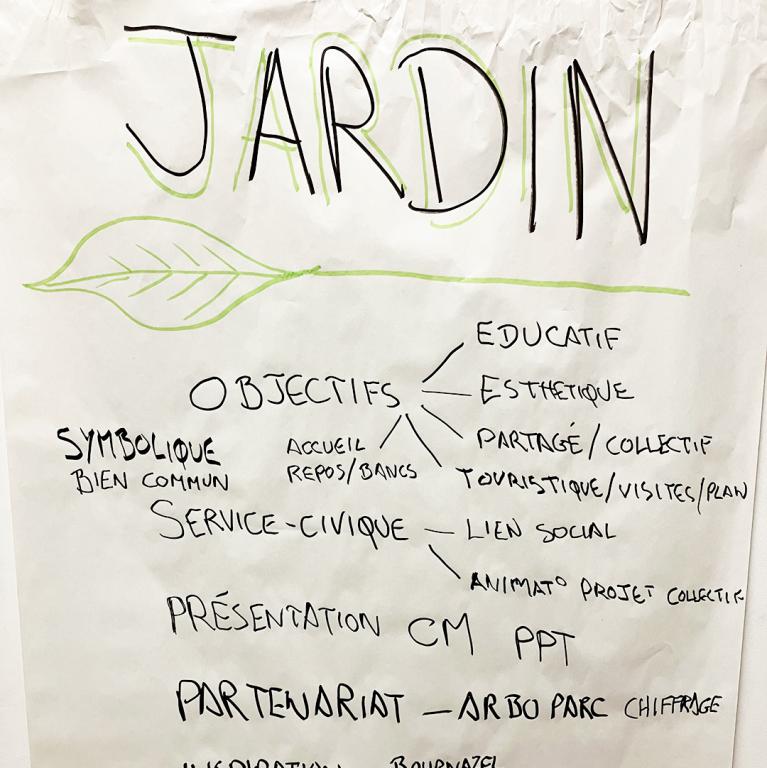 JARDIN
EDUCATIF
OBJECTIFS
ESTHETIQUE
PARTAGÉ/COLLECTIF
SYMBOLIQUE
BIEN COMMUN
ACCUEIL
REPOS/BANCS
TOURISTIQUE/VISITES/PLAN
SERVICE-CIVIQUE — LIEN SOCIAL
ANIMAT° PROJET COLLECTIF
PRÉSENTATION CM PPT
PARTENARIAT — ARBO PARC CHIFFRAGE
INSPIRATION BOURNAZEL